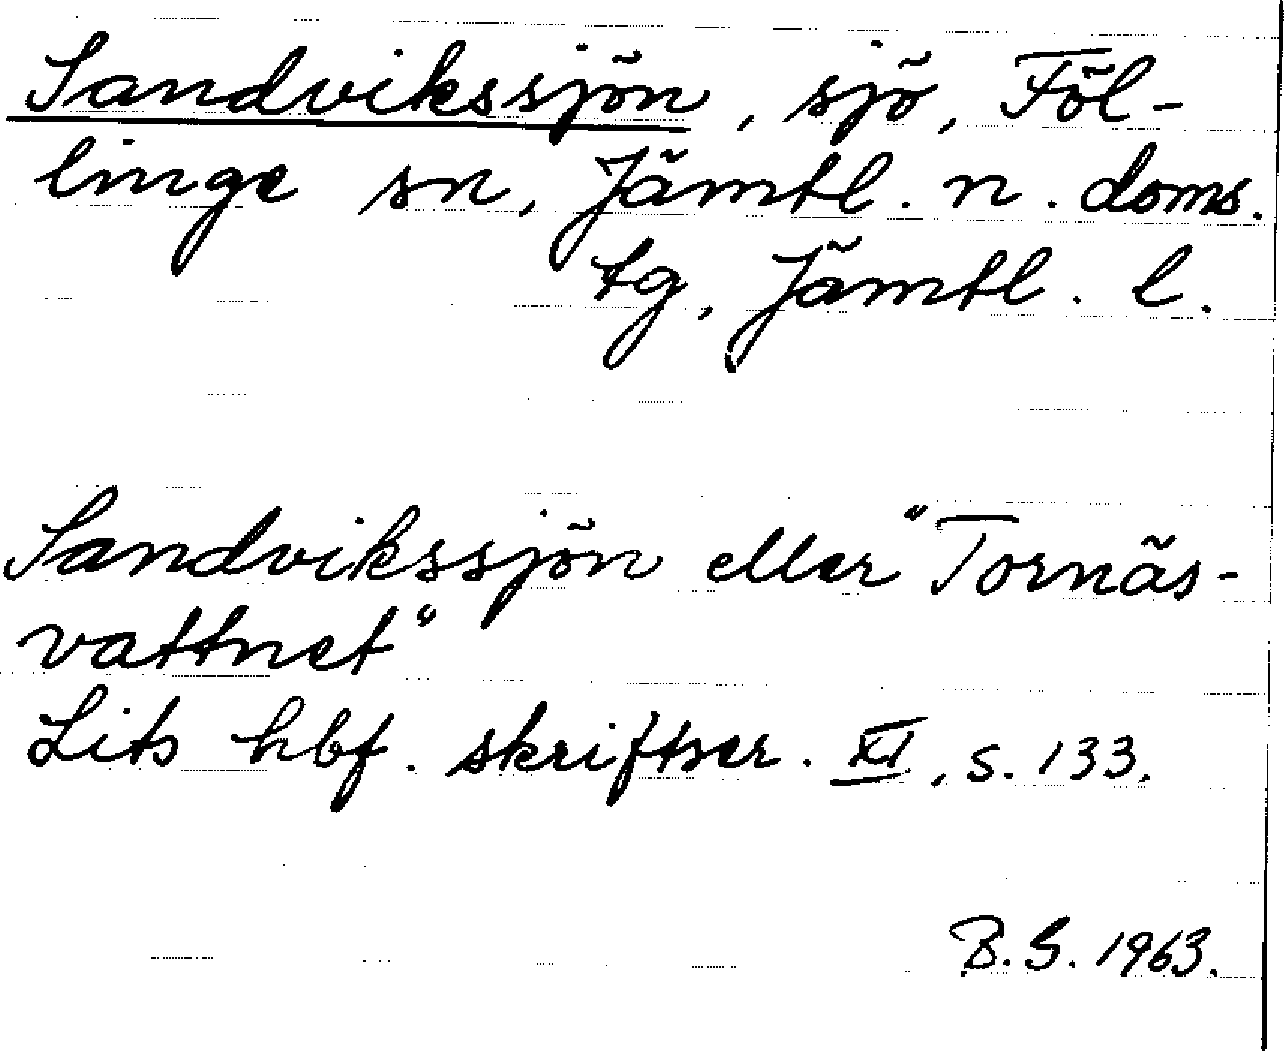 Sandvikssjön, sjö, Föl-
linge sn, Jämtl. n. doms.
tg, Jämtl. l.
Sandvikssjön eller "Tornäs-
vattnet"
Lits hbf. skriftser. XI, s. 133.
B.S. 1963.